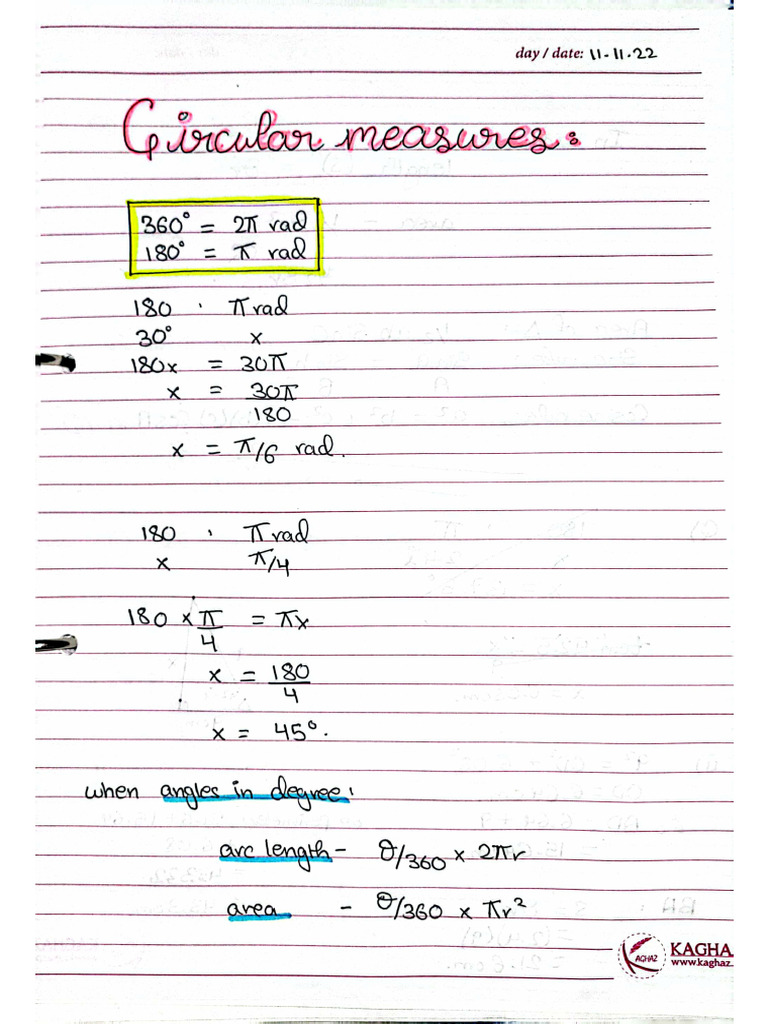 day / date: 11-11-22
Circular measures:
360° = 2π rad
180° = π rad
180 . π rad
30° x
180x = 30π
x = 30π/180
x = π/6 rad.
180 . π rad
x π/4
180 × π/4 = πx
x = 180/4
x = 45°.
when angles in degree:
arc length - θ/360 × 2πr
area - θ/360 × πr²
AGHAZ KAGHA
www.kaghaz.